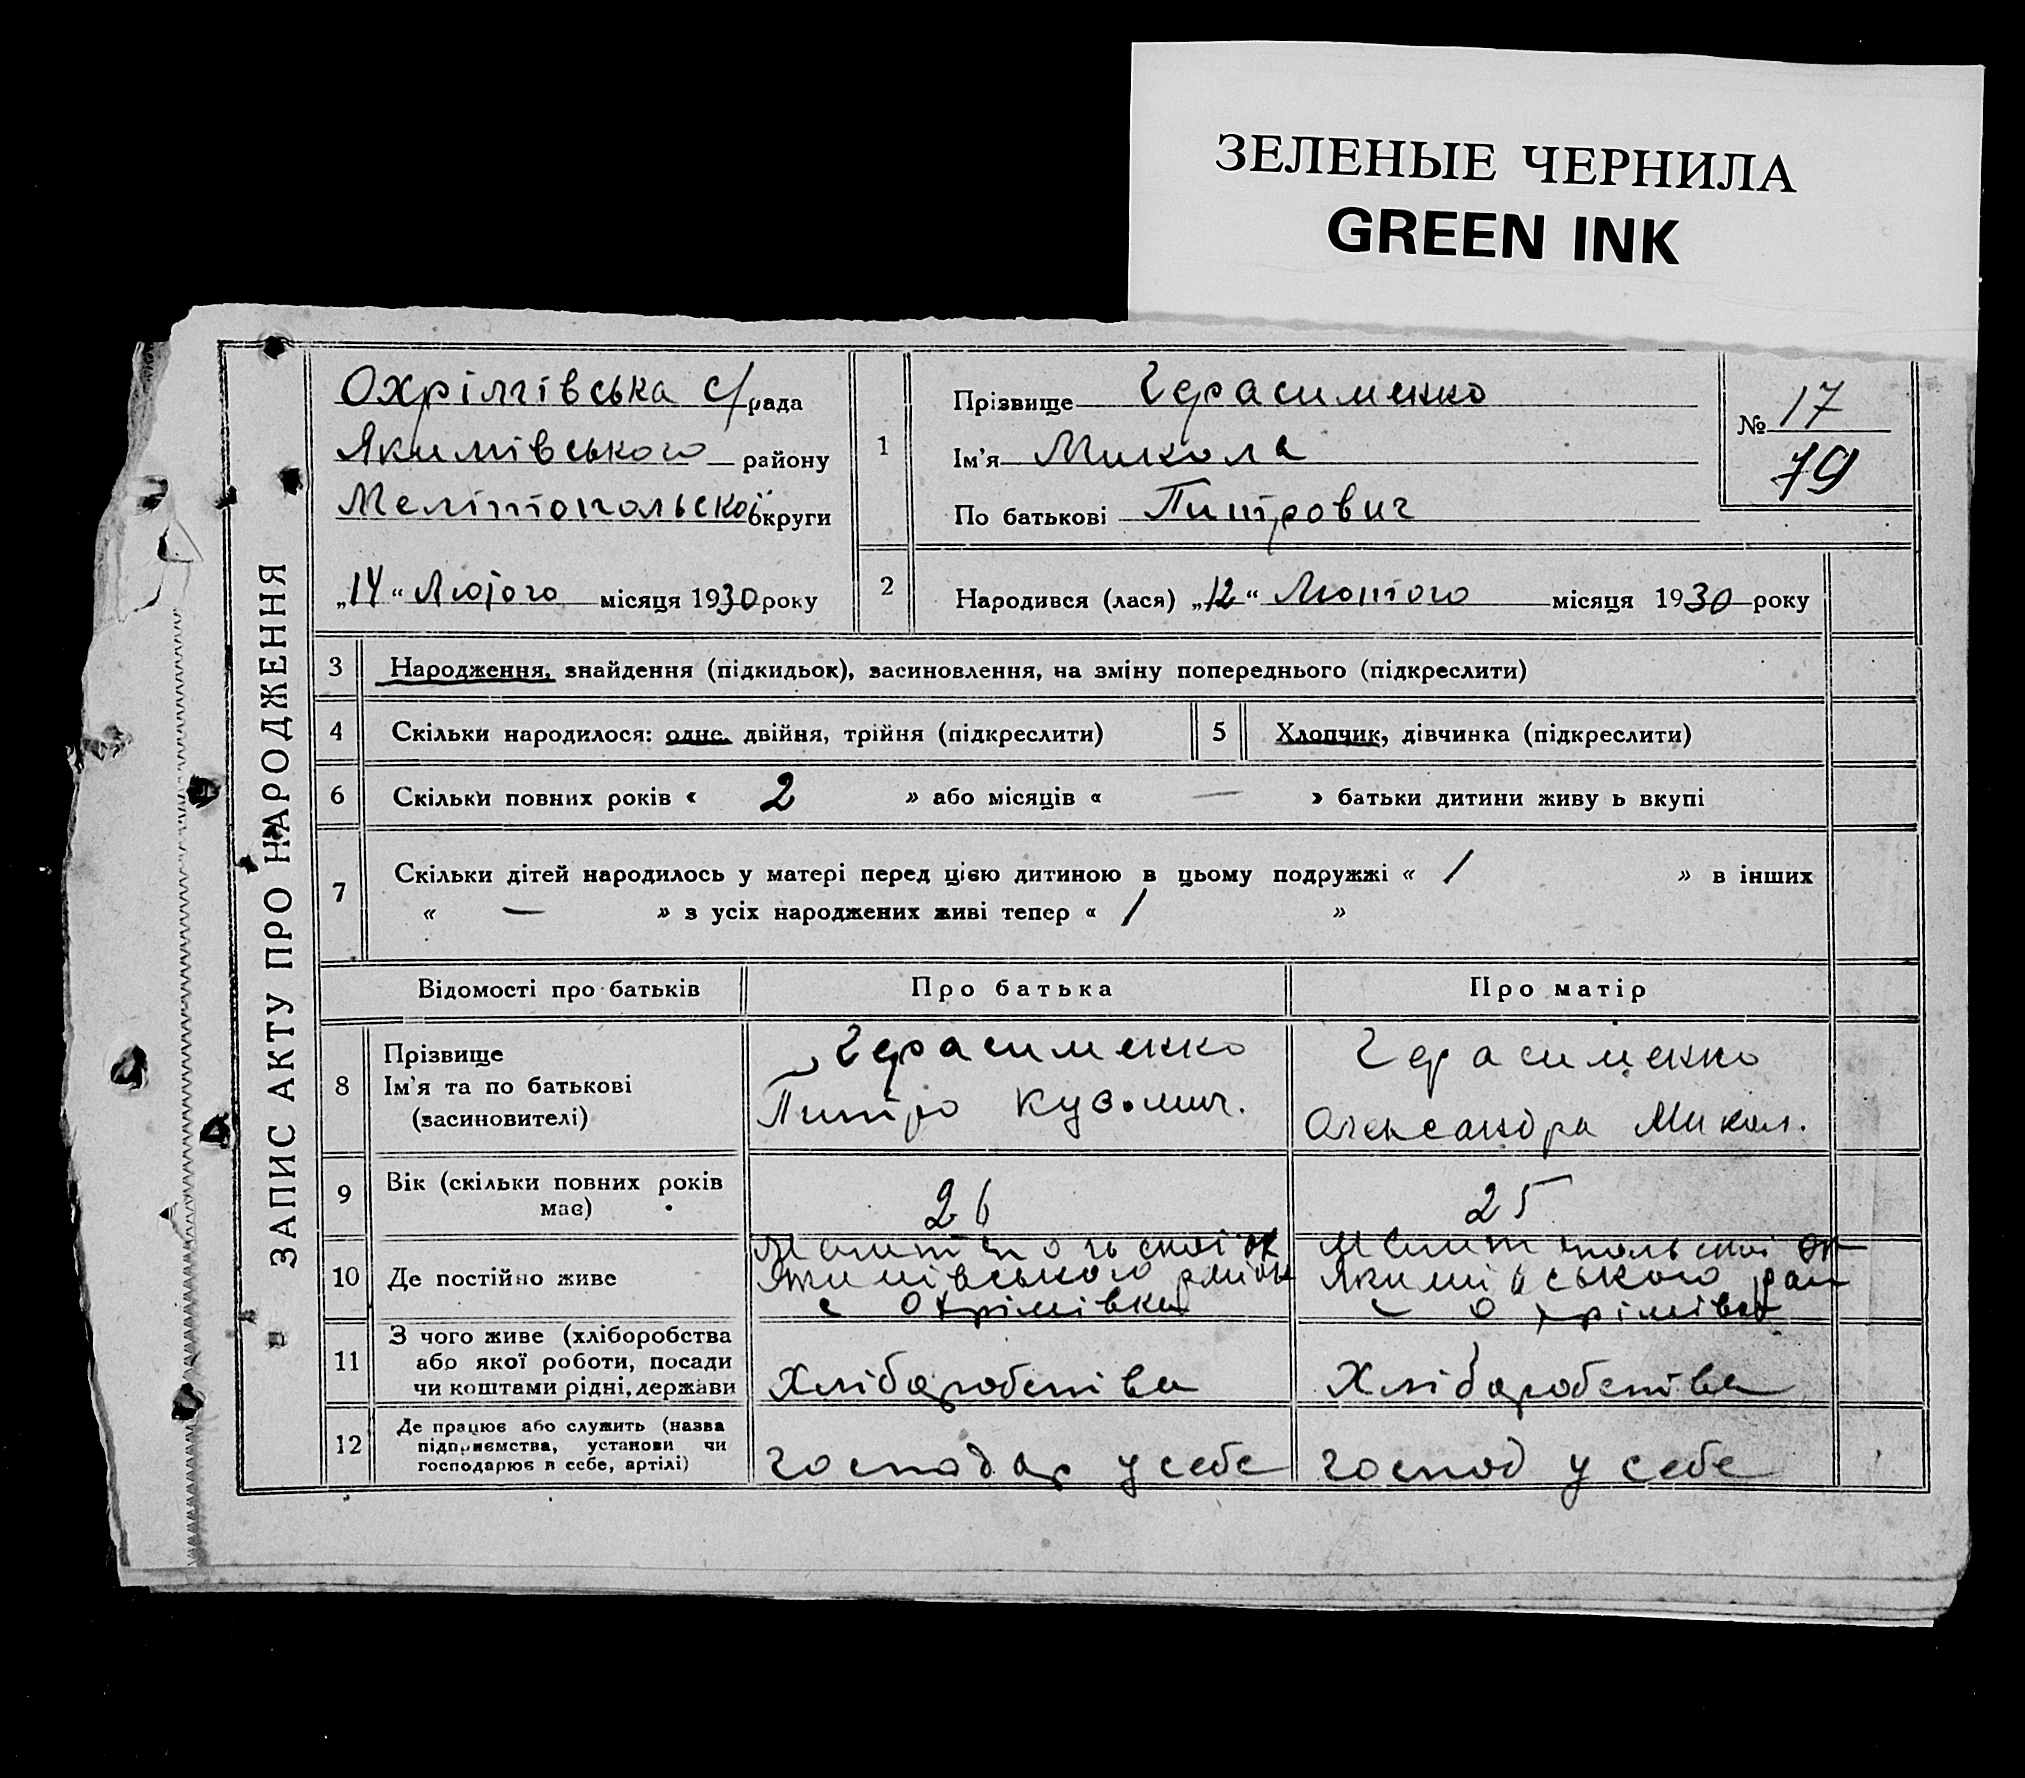 ЗЕЛЕНЫЕ ЧЕРНИЛА
GREEN INK
ЗАПИС АКТУ ПРО НАРОДЖЕННЯ
Охрімівська с/рада
Якимівського району
Мелітопольскої округи
„14“ Лютого місяця 1930 року
1
Прізвище Герасименко
Ім'я Микола
По батькові Питрович
№ 17
79
2
Народився (лася) „12“ Лютого місяця 1930 року
3 Народження, знайдення (підкидьок), засиновлення, на зміну попереднього (підкреслити)
4 Скільки народилося: одне, двійня, трійня (підкреслити)
5 Хлопчик, дівчинка (підкреслити)
6 Скільки повних років « 2 » або місяців « — » батьки дитини живу ь вкупі
7 Скільки дітей народилось у матері перед цією дитиною в цьому подружжі « 1 » в інших
« — » з усіх народжених живі тепер « 1 »
Відомості про батьків
Про батька
Про матір
8 Прізвище
Ім'я та по батькові
(засиновителі)
Герасименко
Питро Кузьмич.
Герасименко
Олександра Микол.
9 Вік (скільки повних років
має)
26
25
10 Де постійно живе
Мелитопольскої ок
Якимівського район
с Охрімівка
Мелитопольскої ок
Якимівського рай
с Охрімівка
11 З чого живе (хліборобства
або якої роботи, посади
чи коштами рідні, держави
Хліборобства
Хліборобства
12 Де працює або служить (назва
підприємства, установи чи
господарює в себе, артілі)
господар у себе
господ у себе